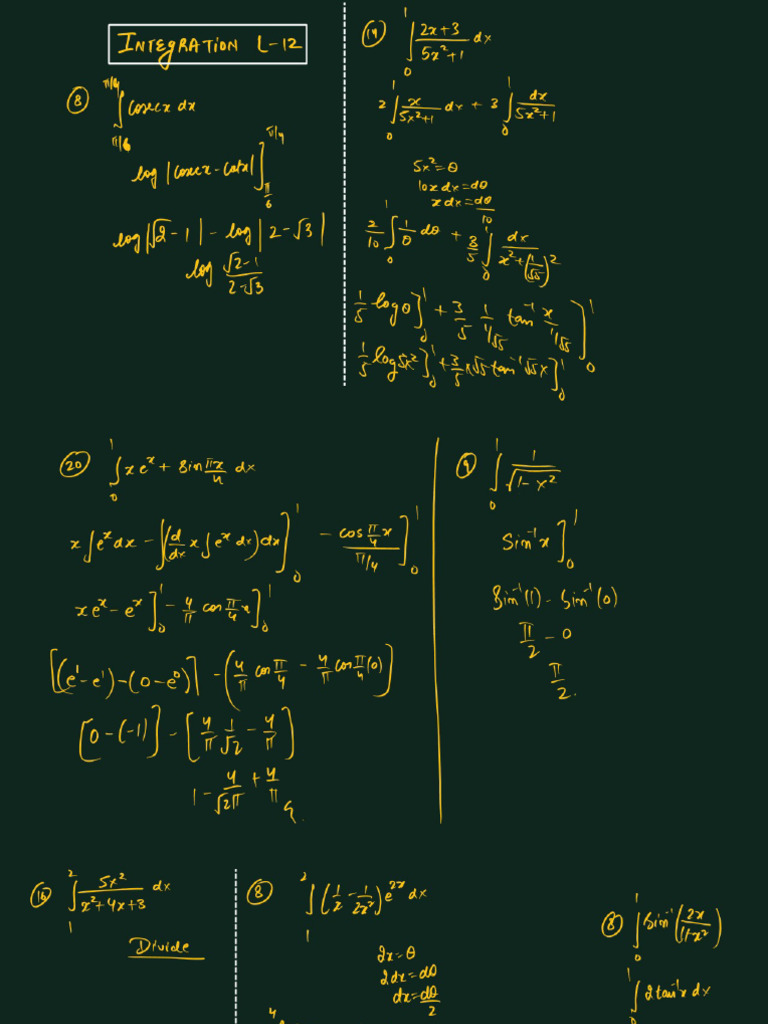 INTEGRATION L-12
⑧ ∫_{π/6}^{π/4} cosecx dx
log |cosecx - cotx| ]_{π/6}^{π/4}
log|√2 - 1| - log | 2 - √3 |
log (√2 - 1)/(2 - √3)
⑭ ∫_0^1 (2x+3)/(5x²+1) dx
2 ∫_0^1 x/(5x²+1) dx + 3 ∫_0^1 dx/(5x²+1)
5x² = θ
10x dx = dθ
x dx = dθ/10
2/10 ∫_0^1 1/θ dθ + 3/5 ∫_0^1 dx/(x² + (1/√5)²)
1/5 log θ ]_0^1 + 3/5 1/(1/√5) tan⁻¹ x/(1/√5) ]_0^1
1/5 log 5x² ]_0^1 + 3/5 x √5 tan⁻¹ √5x ]_0^1
⑳ ∫_0^1 x eˣ + sin πx/4 dx
x ∫eˣ dx - ∫(d/dx x ∫eˣ dx) dx ]_0^1 - (cos π/4 x)/(π/4) ]_0^1
x eˣ - eˣ ]_0^1 - 4/π cos π/4 x ]_0^1
[(e¹ - e¹) - (0 - e⁰)] - (4/π cos π/4 - 4/π cos π/4 (0))
[0 - (-1)] - [4/π 1/√2 - 4/π]
1 - 4/√2π + 4/π
⑨ ∫_0^1 1/√(1 - x²)
Sin⁻¹ x ]_0^1
Sin⁻¹(1) - Sin⁻¹(0)
π/2 - 0
π/2.
⑯ ∫_1^2 5x²/(x²+4x+3) dx
Divide
⑧ ∫_1^2 (1/x - 1/2x²) e^{2x} dx
2x = θ
2dx = dθ
dx = dθ/2
4
⑧ ∫_0^1 Sin⁻¹ (2x/(1+x²))
∫_0^1 2 tan⁻¹x dx